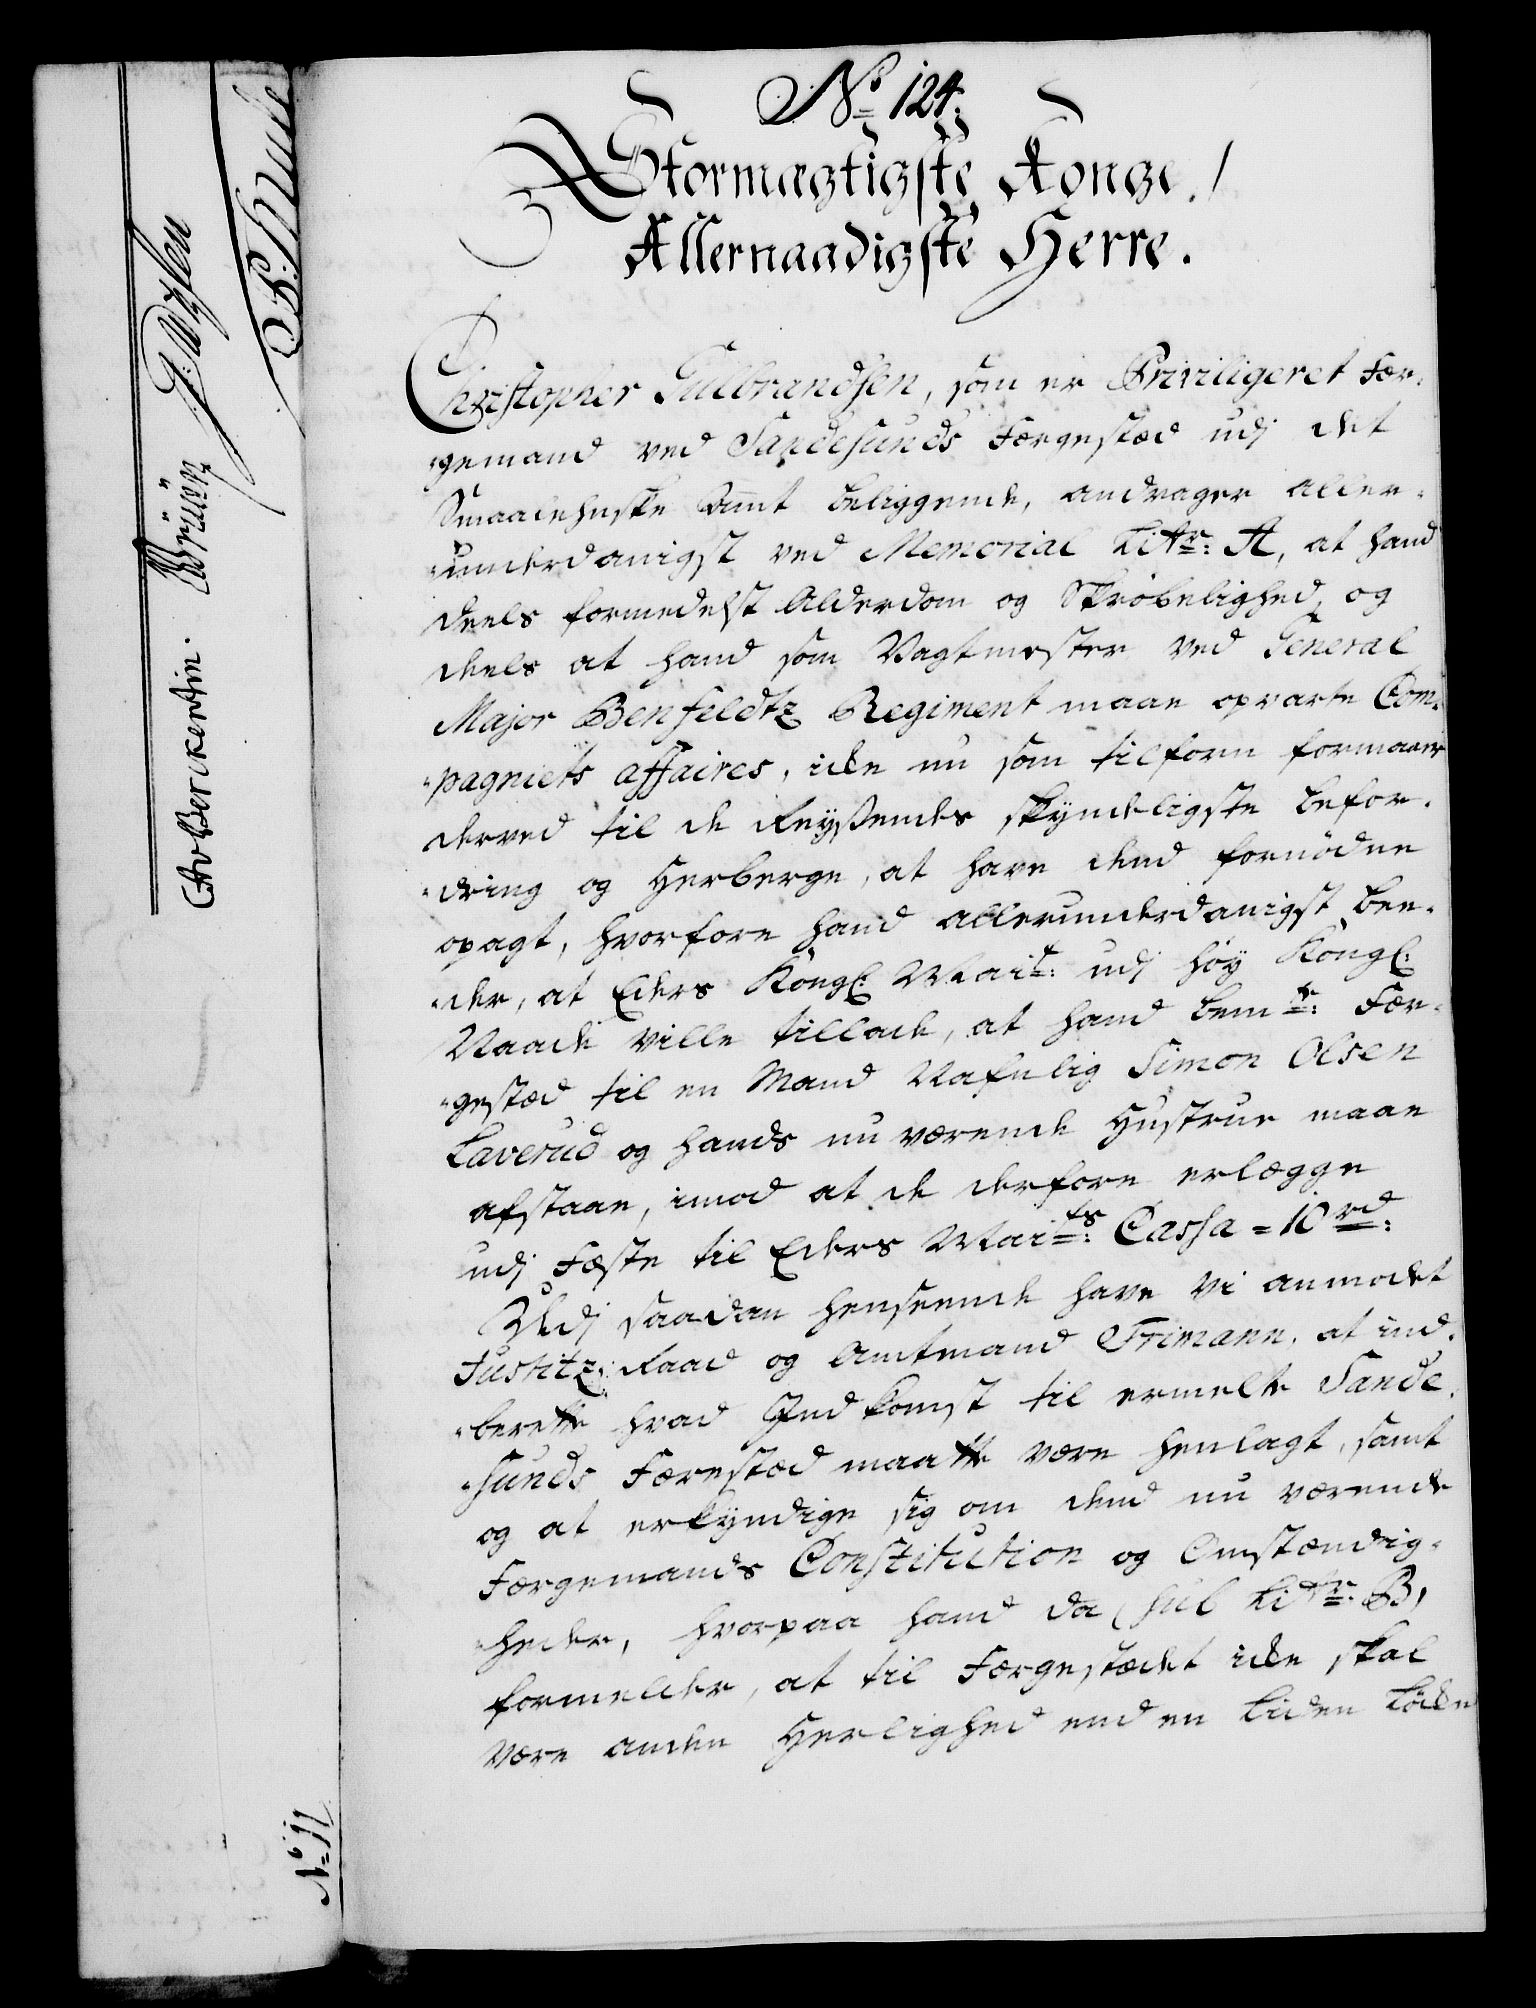 No 124.
Stormægtigste Konge!
Allernaadigste Herre.
Christopher Gulbrandsen, som er Priviligeret Fær-
gemand ved Sandesunds Færgestæd udj det
Smaalehnske Amt beliggende, andrager aller-
underdanigst ved Memorial Litr: A, at hand
deels formedelst Alderdom og Skröbelighed, og
deels at hand som Vagtmester ved General
Major Benfeldtz Regiment maae opvarte Com-
pagniets affaires, icke nu som tilforn formaaer
derved til de Reyßendes skyndeligste befor-
dring og Herberge, at have dend fornödne
opagt, hvorfore hand allerunderdanigst bee-
der, at Eders Kongl: Mait: udj höy Kongl:
Naade ville tillade, at hand bemte: Fær-
gestæd til en Mand Nafnlig Simon Olsen
Laverud og hands nu værende Hustrue maae
afstaae, imod at de derfore erlægge
udj Fæste til Eders Maits: Cassa = 10 rd:
Udj saadan henseende have Vi anmodet
Justitz: Raad og Amtmand Frimann, at ind-
berette hvad Indkomst til ermelte Sande-
sunds Færestæd maatte være henlagt, samt
og at erkyndige sig om dend nu værende
Færgemands Constitution og Omstændig-
heder, hvorpaa hand da (sub Litr: B)
formelder, at til Færgestædet icke skal
være anden Herlighed end en liden Löcke
CAvBerckentin. WBrüün J: Wissen
No 11